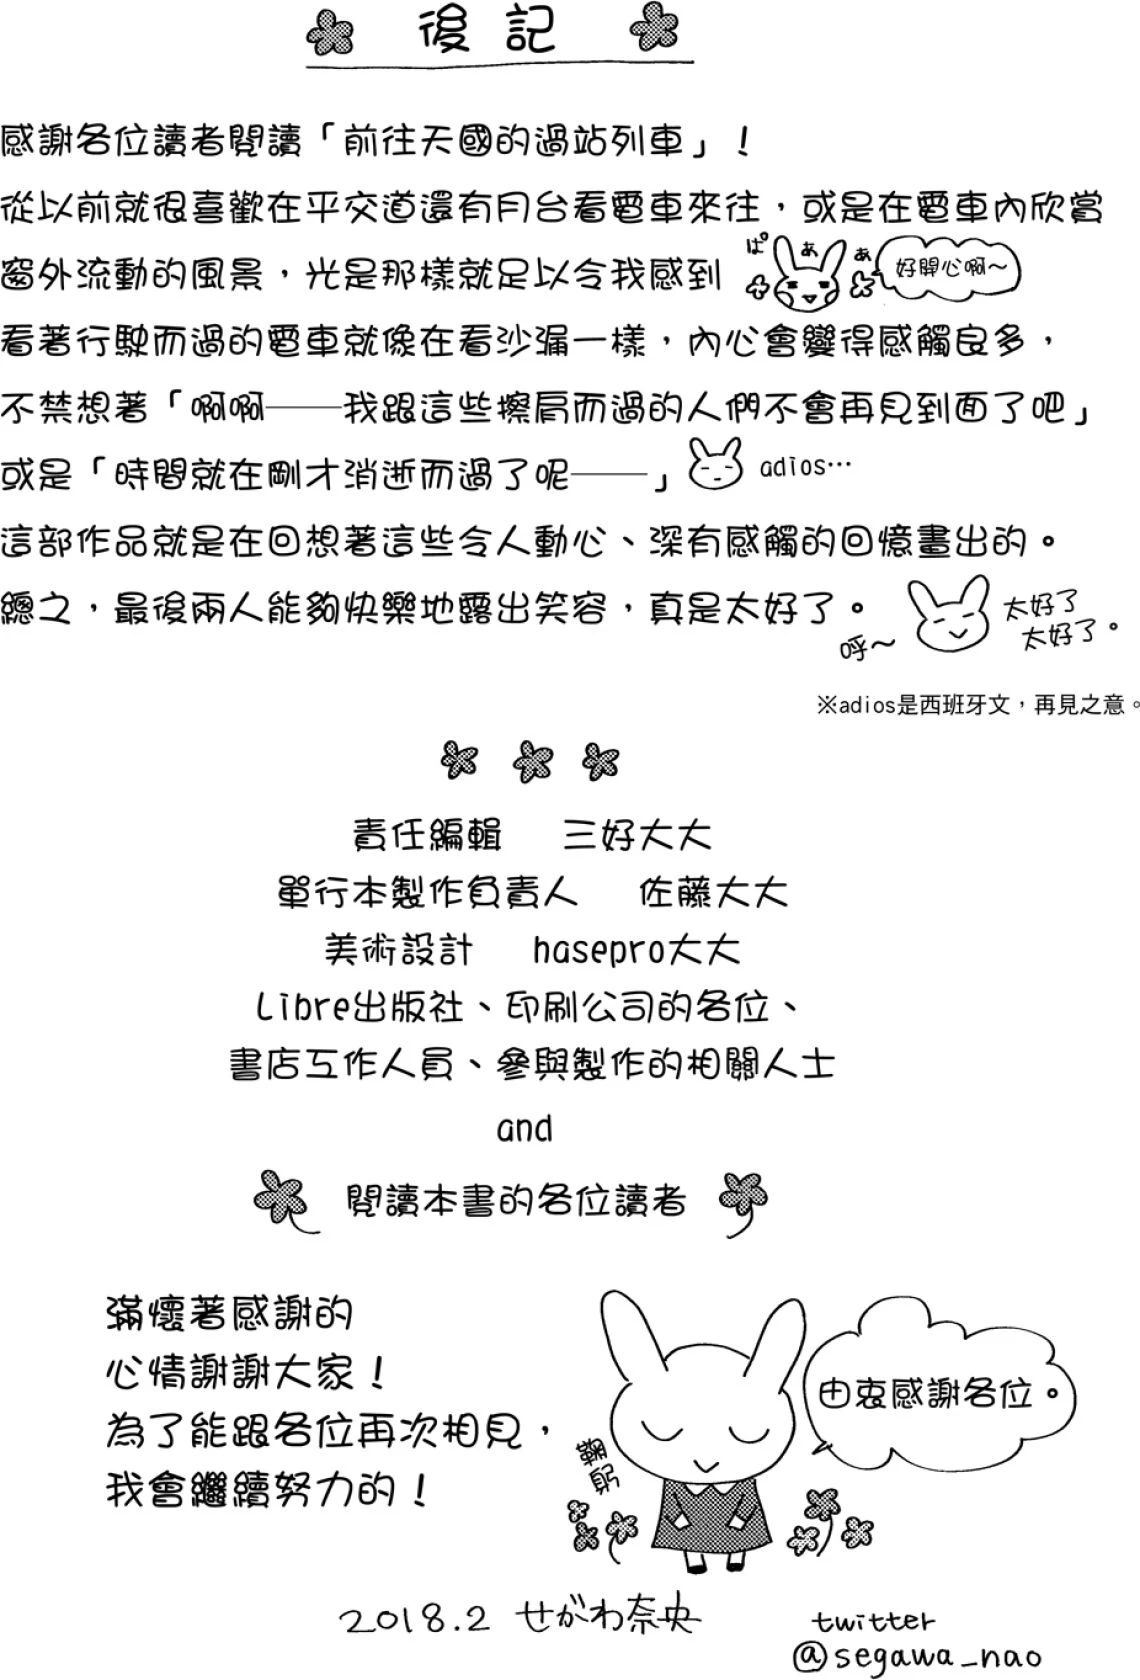 後記
感謝各位讀者閱讀「前往天國的過站列車」！
從以前就很喜歡在平交道還有月台看電車來往，或是在電車內欣賞
窗外流動的風景，光是那樣就足以令我感到
ぱぁぁ
好開心啊～
看著行駛而過的電車就像在看沙漏一樣，內心會變得感觸良多，
不禁想著「啊啊——我跟這些擦肩而過的人們不會再見到面了吧」
或是「時間就在剛才消逝而過了呢——」
adios…
這部作品就是在回想著這些令人動心、深有感觸的回憶畫出的。
總之，最後兩人能夠快樂地露出笑容，真是太好了。
呼～
太好了
太好了。
※adios是西班牙文，再見之意。
責任編輯 三好大大
單行本製作負責人 佐藤大大
美術設計 hasepro大大
Libre出版社、印刷公司的各位、
書店工作人員、參與製作的相關人士
and
閱讀本書的各位讀者
滿懷著感謝的
心情謝謝大家！
為了能跟各位再次相見，
我會繼續努力的！
鞠躬
由衷感謝各位。
2018.2 せがわ奈央
twitter
@segawa_nao